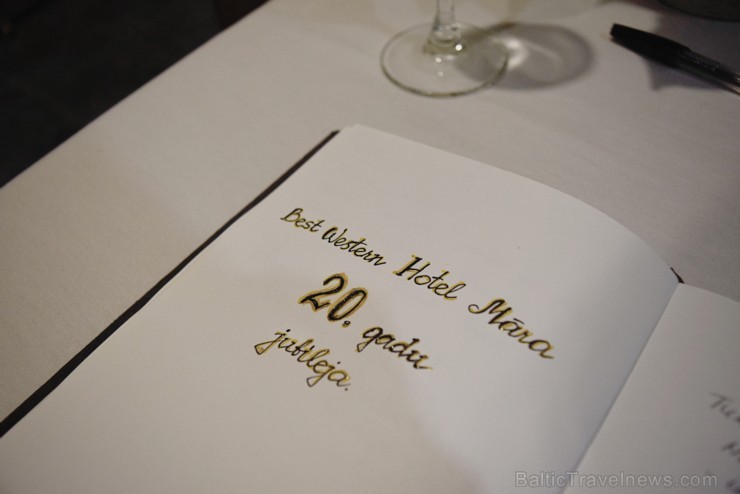 Best Western Hotel Māra
20. gadu
jubileja.
BalticTravelnews.com